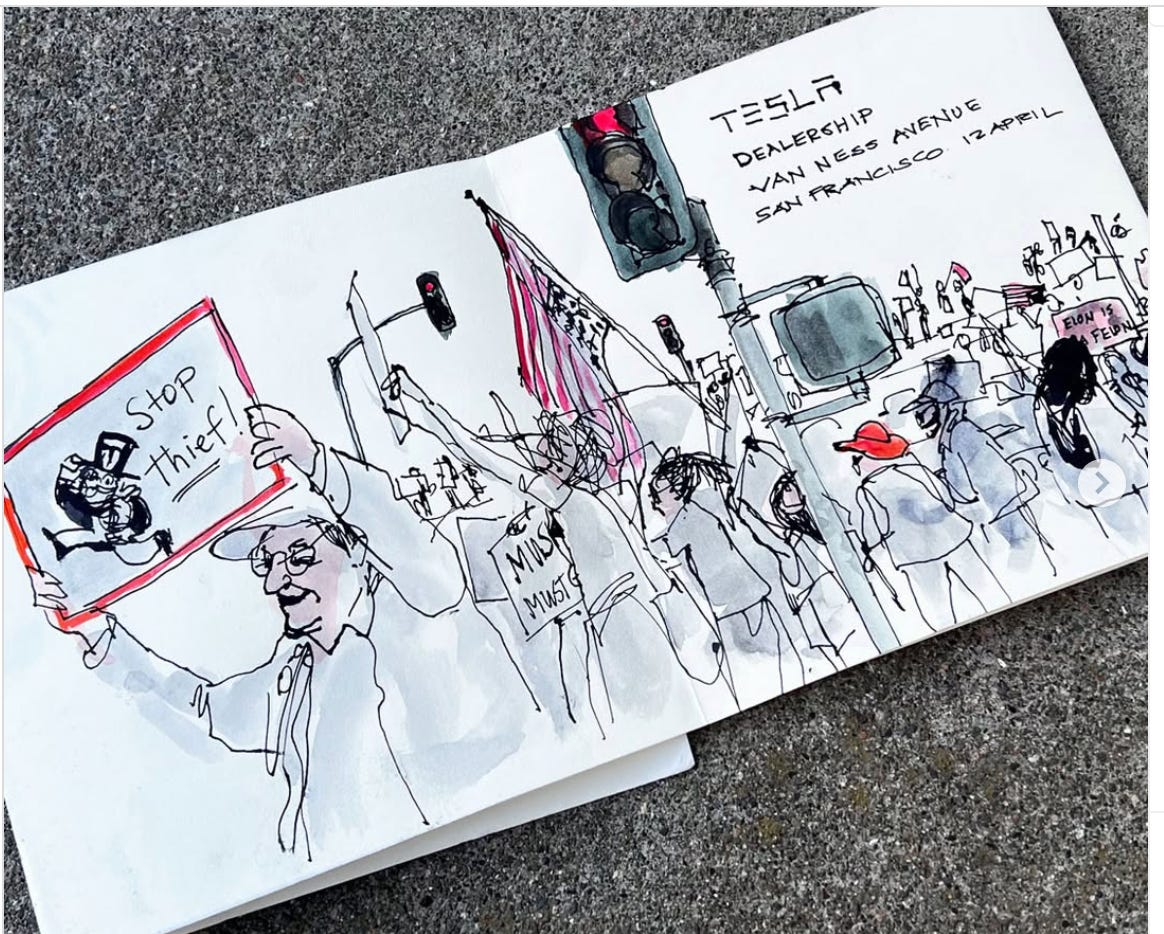 TESLA
DEALERSHIP
VAN NESS AVENUE
SAN FRANCISCO 12 APRIL
Stop
thief!
ELON IS
A FELON
MUST